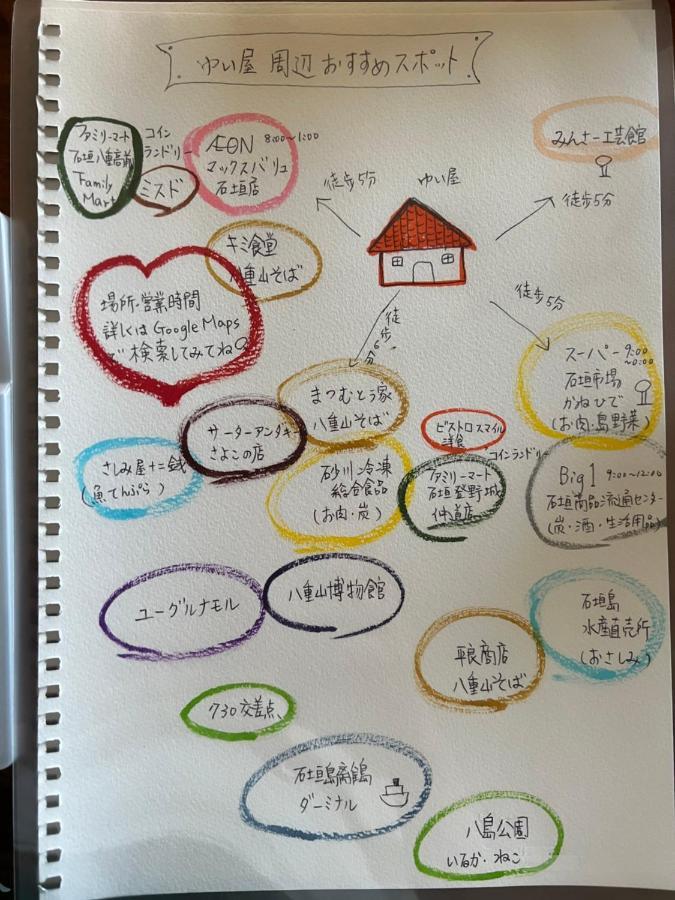 ゆい屋 周辺 おすすめスポット
ファミリーマート
石垣八重高前
Family
Mart
コイン
ランドリー
ミスド
ÆON 8:00〜1:00
マックスバリュ
石垣店
徒歩5分
ゆい屋
みんさー工芸館
徒歩5分
キミ食堂
八重山そば
場所・営業時間
詳しくは Google Maps
で検索してみてね
徒歩6分
徒歩5分
スーパー 9:00
〜0:00
石垣市場
かねひで
(お肉・島野菜)
まつむとう家
八重山そば
サーターアンダギー
さよこの店
ビストロスマイル
洋食
コインランドリー
さしみ屋十二銭
(魚てんぷら)
砂川冷凍
総合食品
(お肉・炭)
ファミリーマート
石垣登野城
仲道店
Big1 9:00〜12:00
石垣商品流通センター
(炭・酒・生活用品)
ユーグルナモル
八重山博物館
石垣島
水産直売所
(おさしみ)
平良商店
八重山そば
730交差点
石垣島離島
ターミナル
八島公園
いるか・ねこ